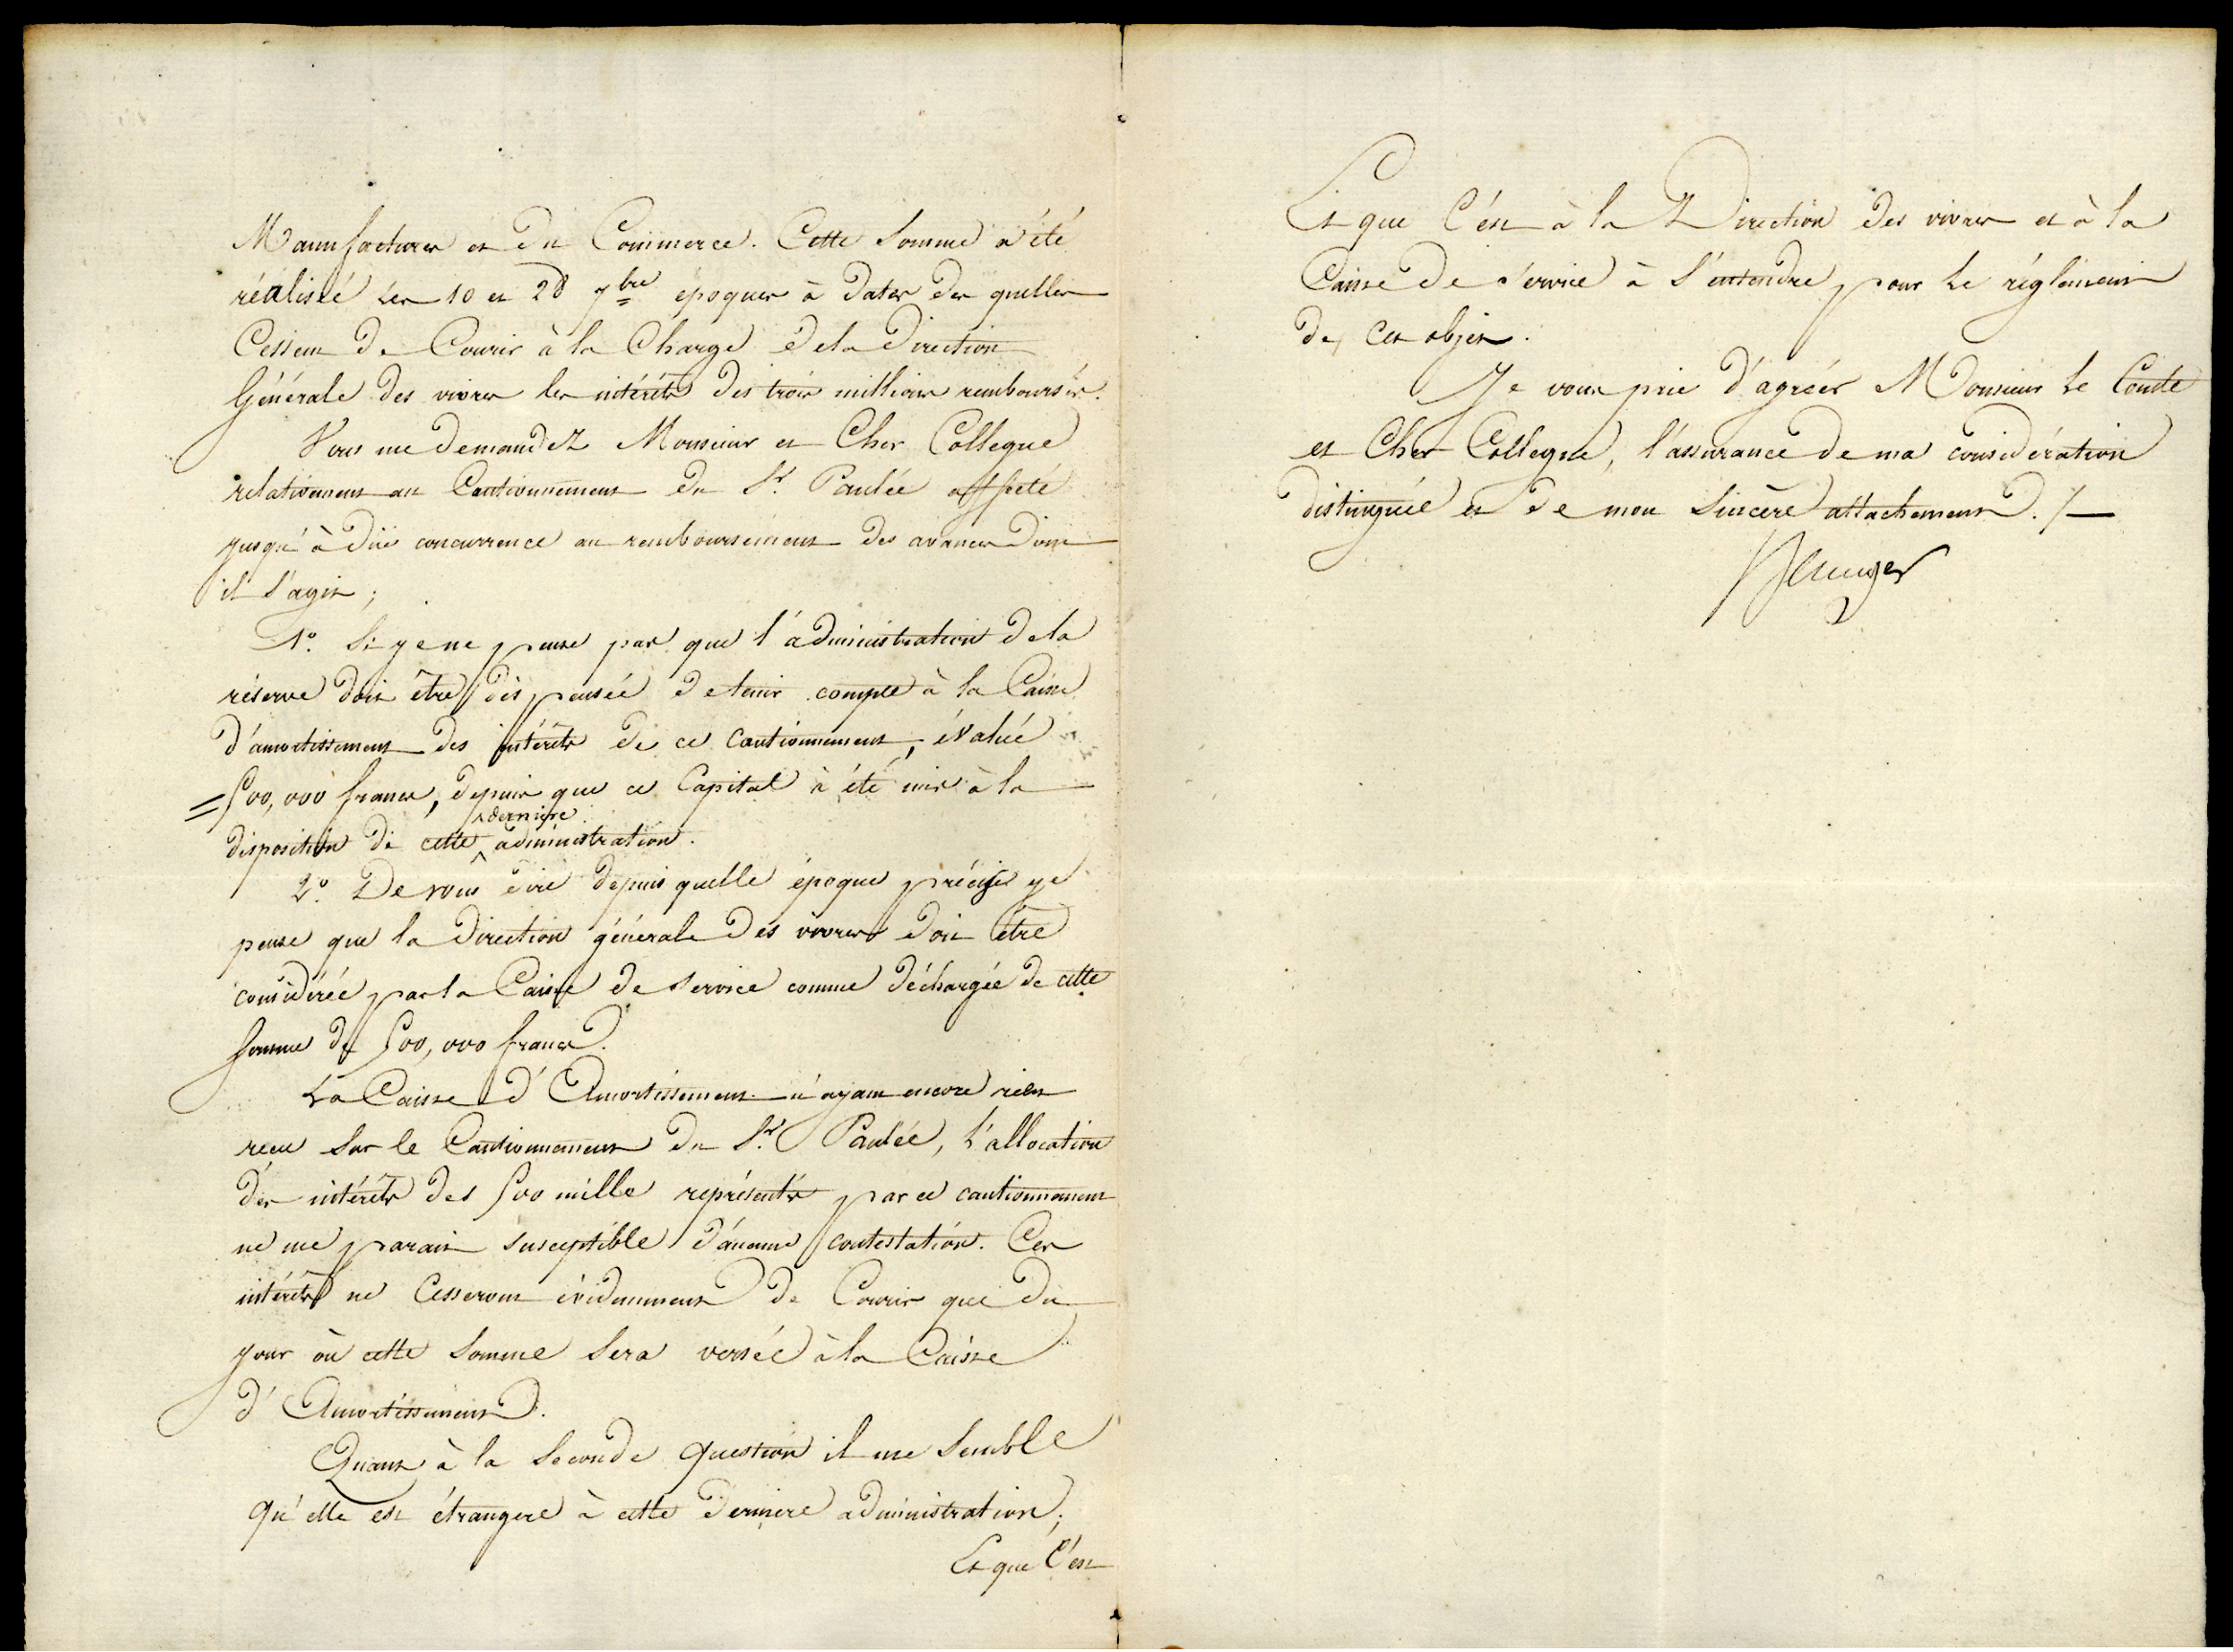 Manufactures et du Commerce. Cette Somme a été
réalisée les 10 et 28 7bre époques à dater des quelles
Cessent de Courir à la Charge de la Direction
Générale des vivres les intérêts des trois millions remboursés.
Vous me demandez Monsieur et Cher Collegue
relativement au Cautionnement du Sr. Paulée affecté
jusqu'à due concurrence au remboursement des avances dont
il S'agit ;
1o. Si je ne pense pas que l'administration de la
réserve doit être dispensée de tenir compte à la Caisse
d'amortissement des intérêts de ce Cautionnement, évalué
= 500,000 francs, depuis que ce Capital à été mis à la
disposition de cette derniere administration.
2o. De vous dire depuis quelle époque précise je
pense que la Direction générale des vivres doit être
considérée par la Caisse de Service comme déchargée de cette
Somme de 500,000 francs.
La Caisse d'Amortissement n'ayant encore rien
reçu Sur le Cautionnement du Sr. Paulée, l'allocation
des intérêts des 500 mille représentés par ce cautionnement
ne me parait susceptible d'aucune contestation. Ces
intérêts ne Cesseront évidemment de Courir que du
jour où cette Somme Sera versée à la Caisse
d'Amortissement.
Quant à la Seconde question il me Semble
qu'elle est étrangere à cette derniere administration ;
Et que C'est
Et que C'est à la Direction des vivres et à la
Caisse de Service à S'entendre pour le réglement
de cet objet.
Je vous prie d'agréer Monsieur le Comte
et Cher Collegue, l'assurance de ma considération
distinguée et de mon Sincère attachement. /-